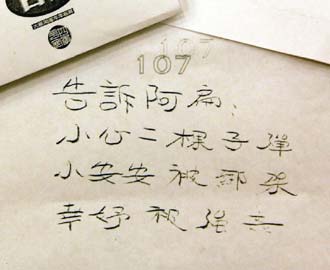 107
107
告訴阿扁、
小心二棵子彈
小安安被綁架
幸妤被強